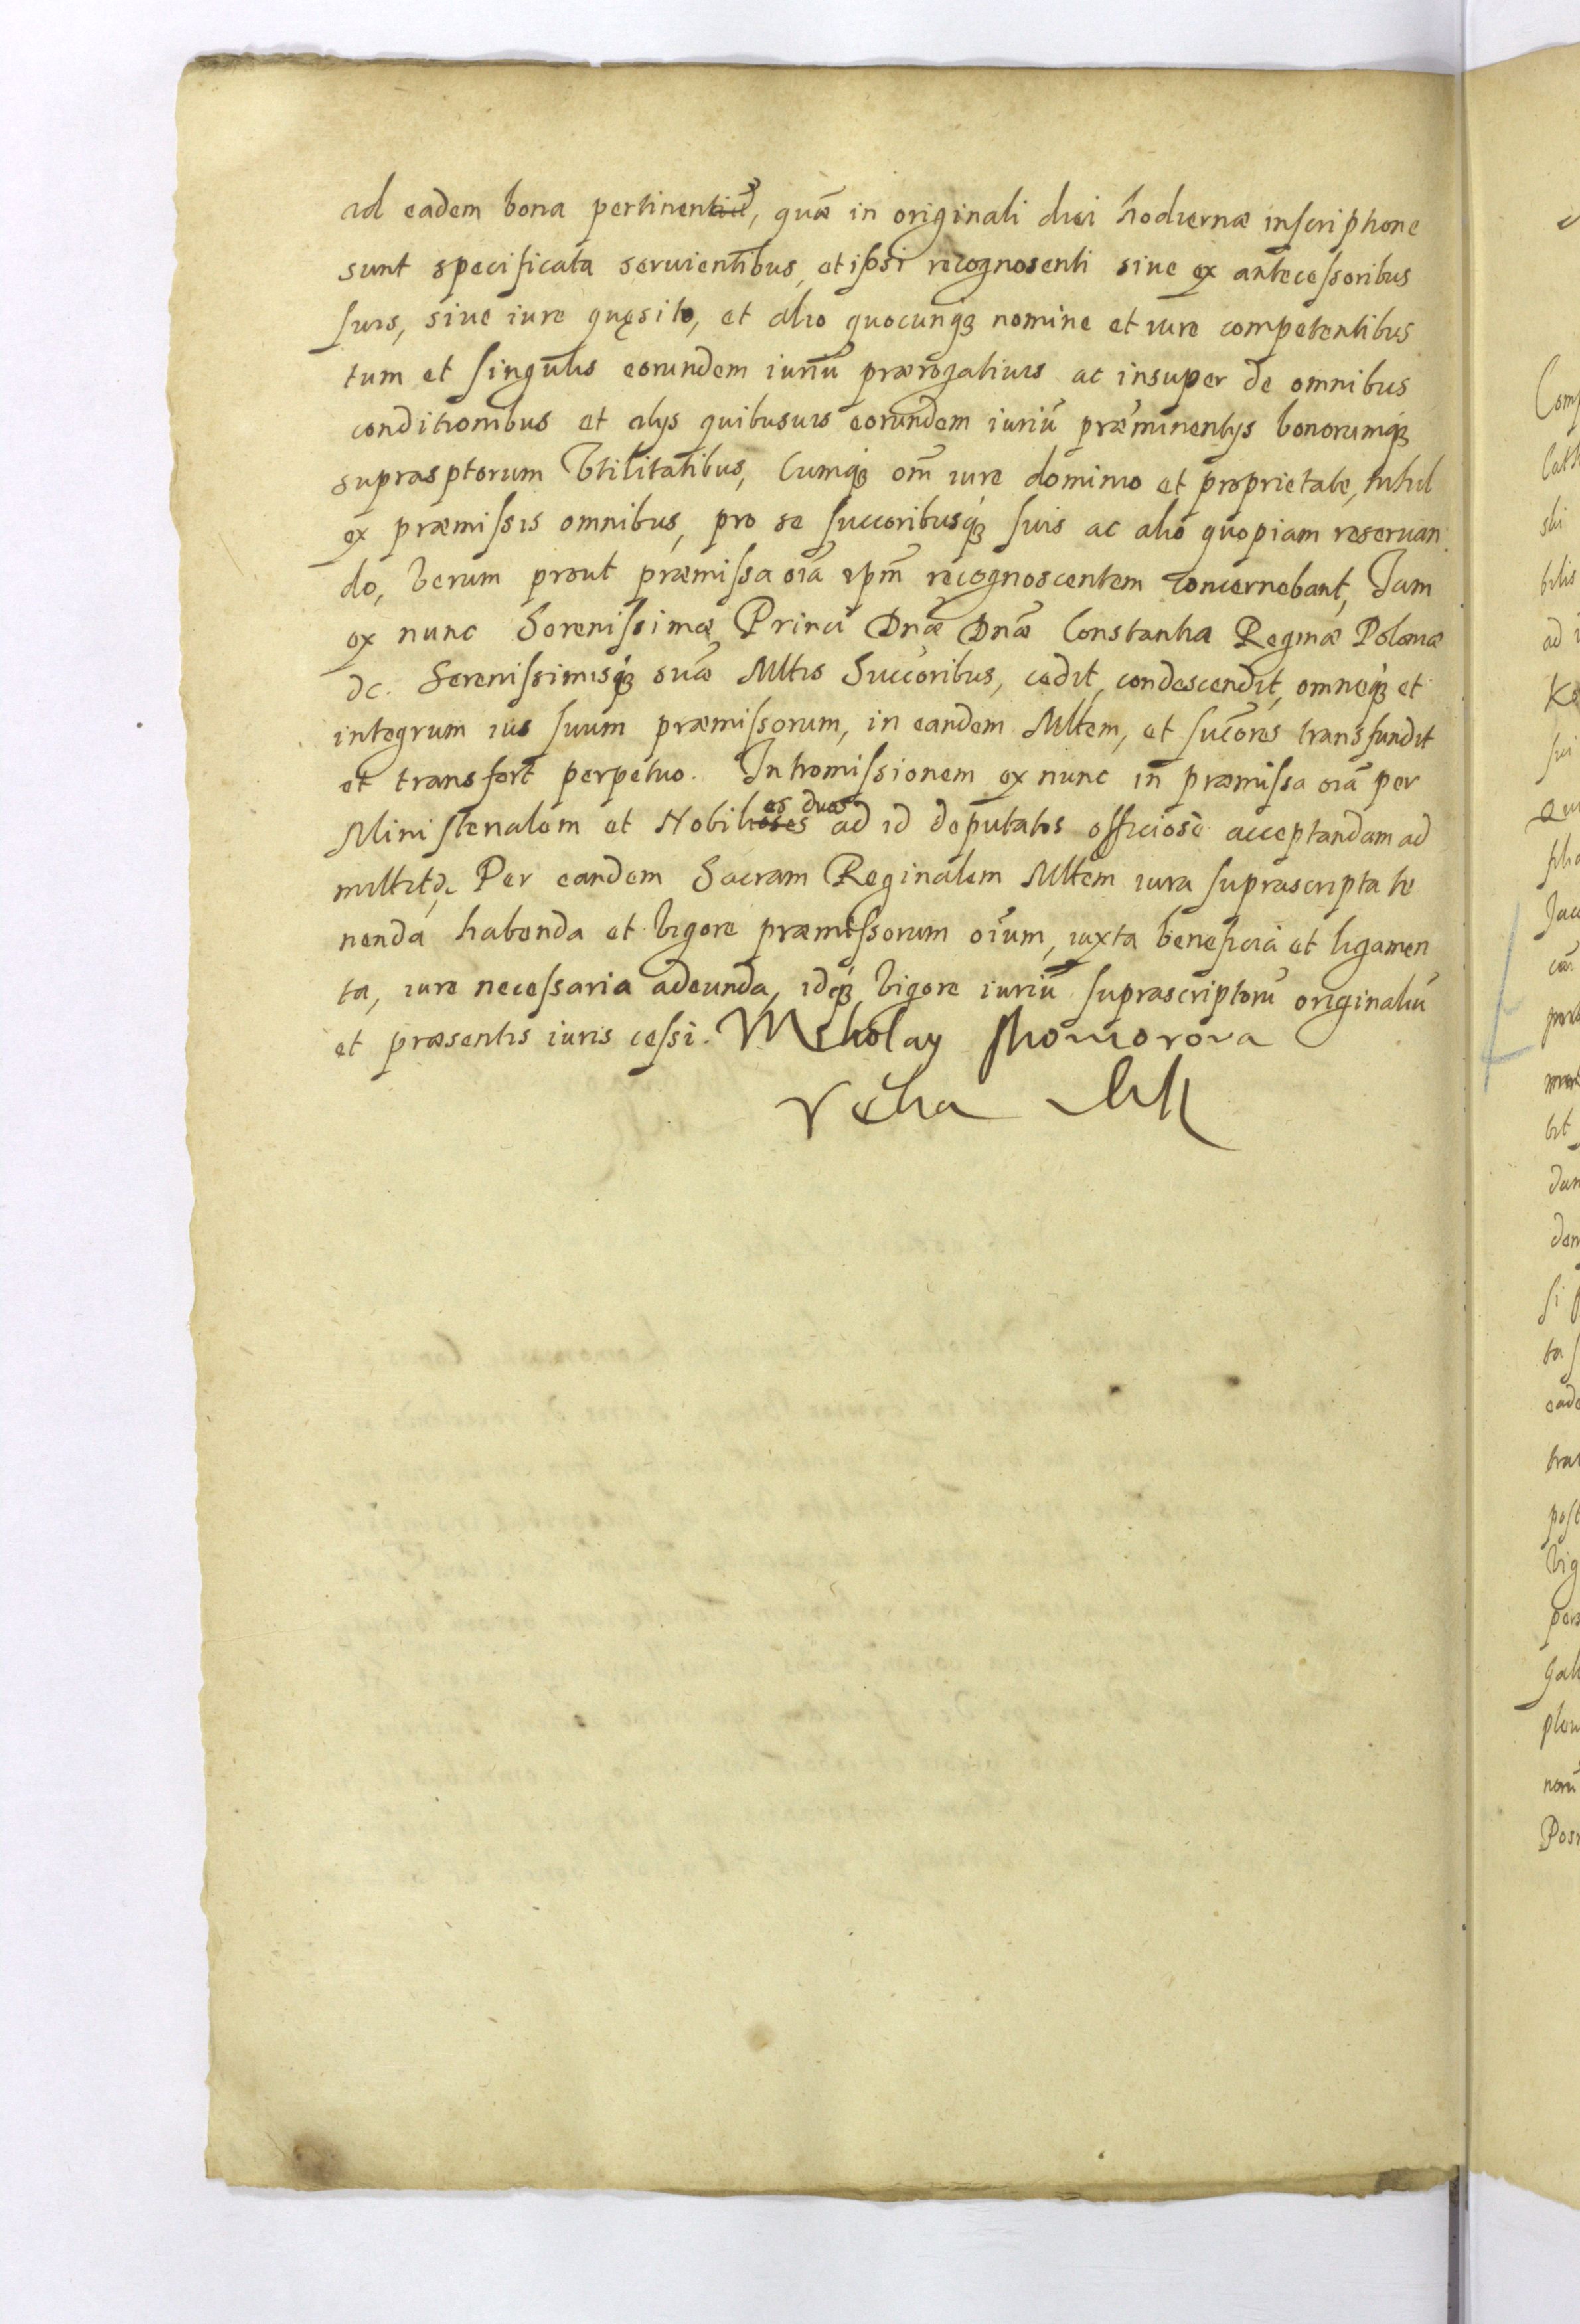 ad eadem bona pertinentiũ, quæ in originali diei hodiernæ inscriptione
sunt specificata seruientibus, et ipsi recognosenti siue ex antecessoribus
suis, siue iure quęsito, et alio quocunqꝫ nomine et iure competentibus
tum et singulis eorundem iuriũ prærogatiuis ac insuper de omnibus
conditionibus et alys quibusuis eorundem iuriũ præminentys bonorumqꝫ
suprasptorum Vtilitatibus, Cumqꝫ om̃ iure dominio et proprietate, nihil
ex præmissis omnibus, pro se succoribusqꝫ suis ac alio quopiam reseruan
do, Verum prout præmissa oĩa ipm̃ recognoscentem concernebant, Jam
ex nunc Serenissimæ Princi Dnæ Dnæ Constantia Reginæ Poloniæ
dc. Serenissimisqꝫ suæ Mltis Succoribus, cedit, condescendit, omneqꝫ et
integrum ius suum præmissorum, in eandem Mltem, et sucõres transfundit
et transfert perpetuo. Intromissionem ex nunc in præmissa oĩa per
Ministerialem et Nobiles duos ad id deputatos officiosè acceptandam ad
mittit, Per eandem Sacram Reginalem Mltem iura suprascripta te
nenda habenda et Vigore præmissorum oĩum, iuxta beneficia et ligamen
ta, iure necessaria adeunda, idqꝫ Vigore iuriũ suprascriptorũ originaliũ
et præsentis iuris cessi. Mikolay Komorowa